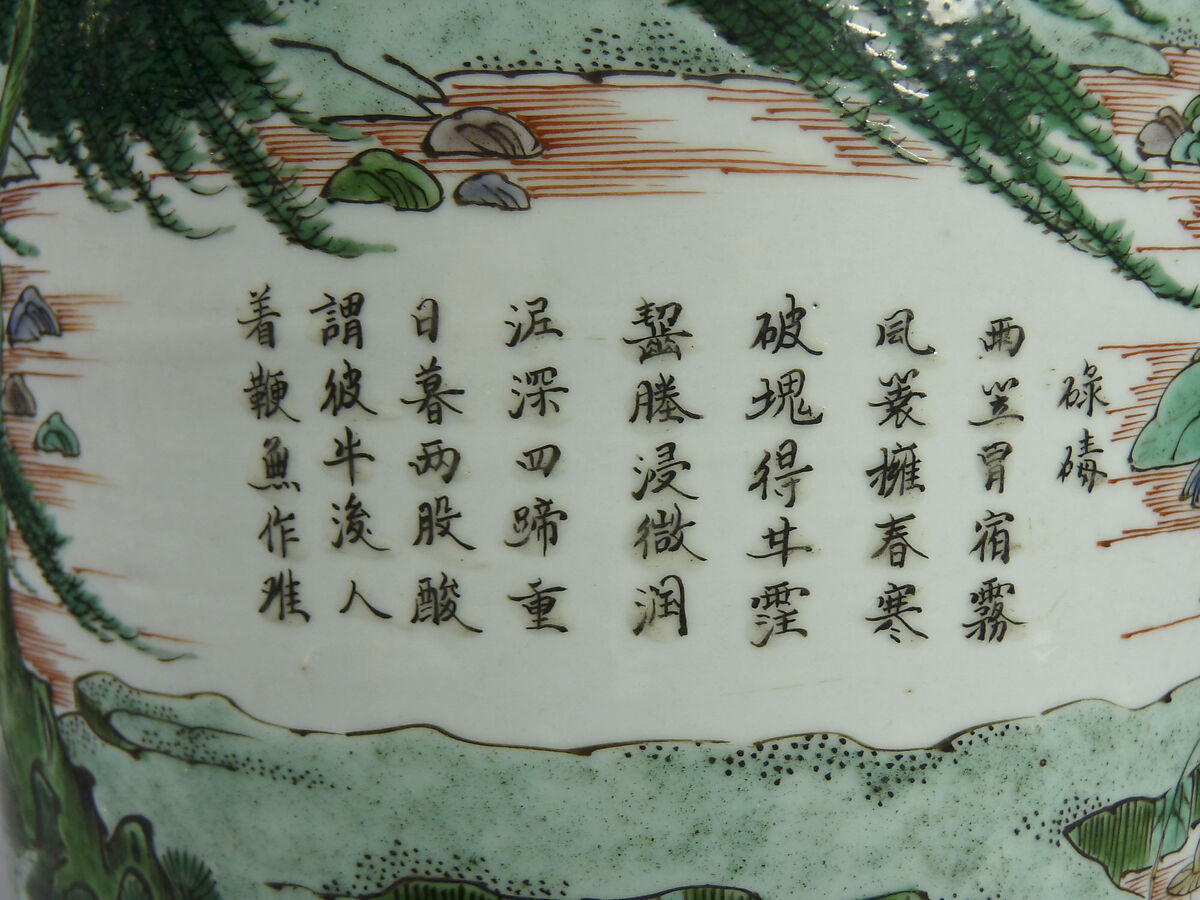 碌碡
雨笠冒宿霧
風簑擁春寒
破塊得甘霔
齧塍浸微润
泥深四蹄重
日暮两股酸
謂彼牛後人
着鞭無作难